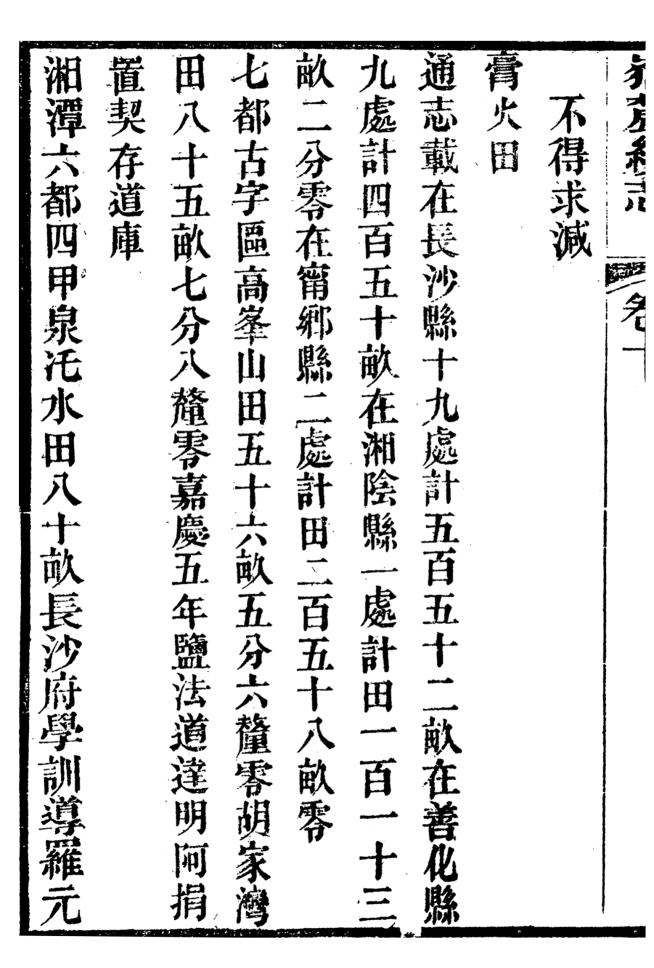 不得求減
膏火田
通志載在長沙縣十九處計五百五十二畝在善化縣
九處計四百五十畝在湘陰縣一處計田一百一十三
畝二分零在甯鄉縣二處計田二百五十八畝零
七都古字區高峯山田五十六畝五分六釐零胡家灣
田八十五畝七分八釐零嘉慶五年鹽法道達明阿捐
置契存道庫
湘潭六都四甲泉㲼水田八十畝長沙府學訓導羅元